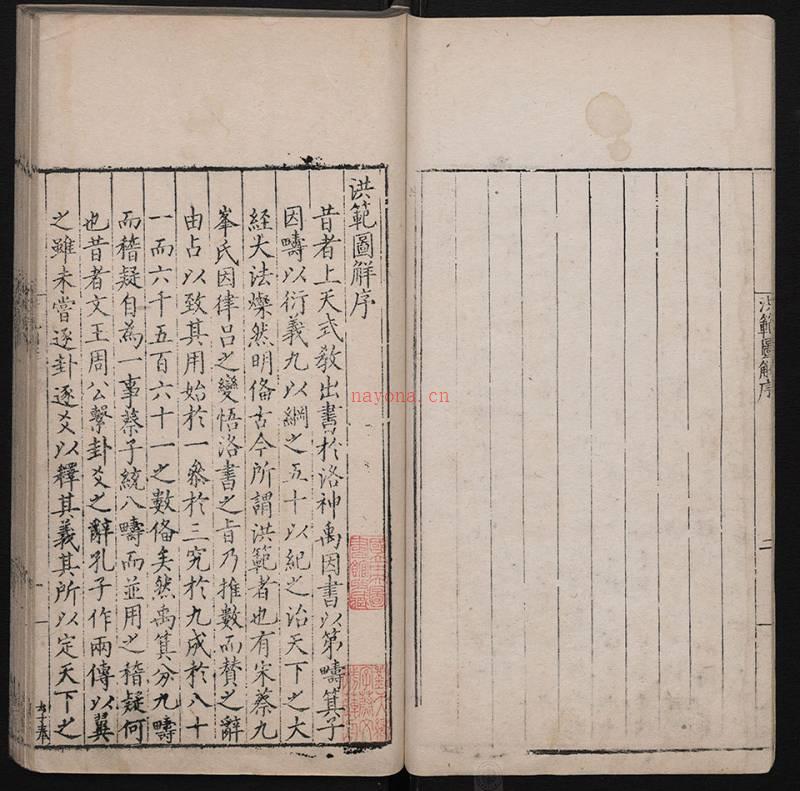 洪範圖解序
二
洪範圖觧序
昔者上天式教出書於洛神禹因書以第疇箕子
因疇以衍義九以綱之五十以紀之治天下之大
經大法燦然明俻古今所謂洪範者也有宋蔡九
峯氏因律吕之變悟洛書之旨乃推數而贊之辭
由占以致其用始於一叅於三究於九成於八十
一而六千五百六十一之數俻矣然禹箕分九疇
而稽疑自為一事蔡子統八疇而並用之稽疑何
也昔者文王周公繫卦爻之辭孔子作兩傳以翼
之雖未嘗逐卦逐爻以釋其義其所以定天下之
nayona.cn